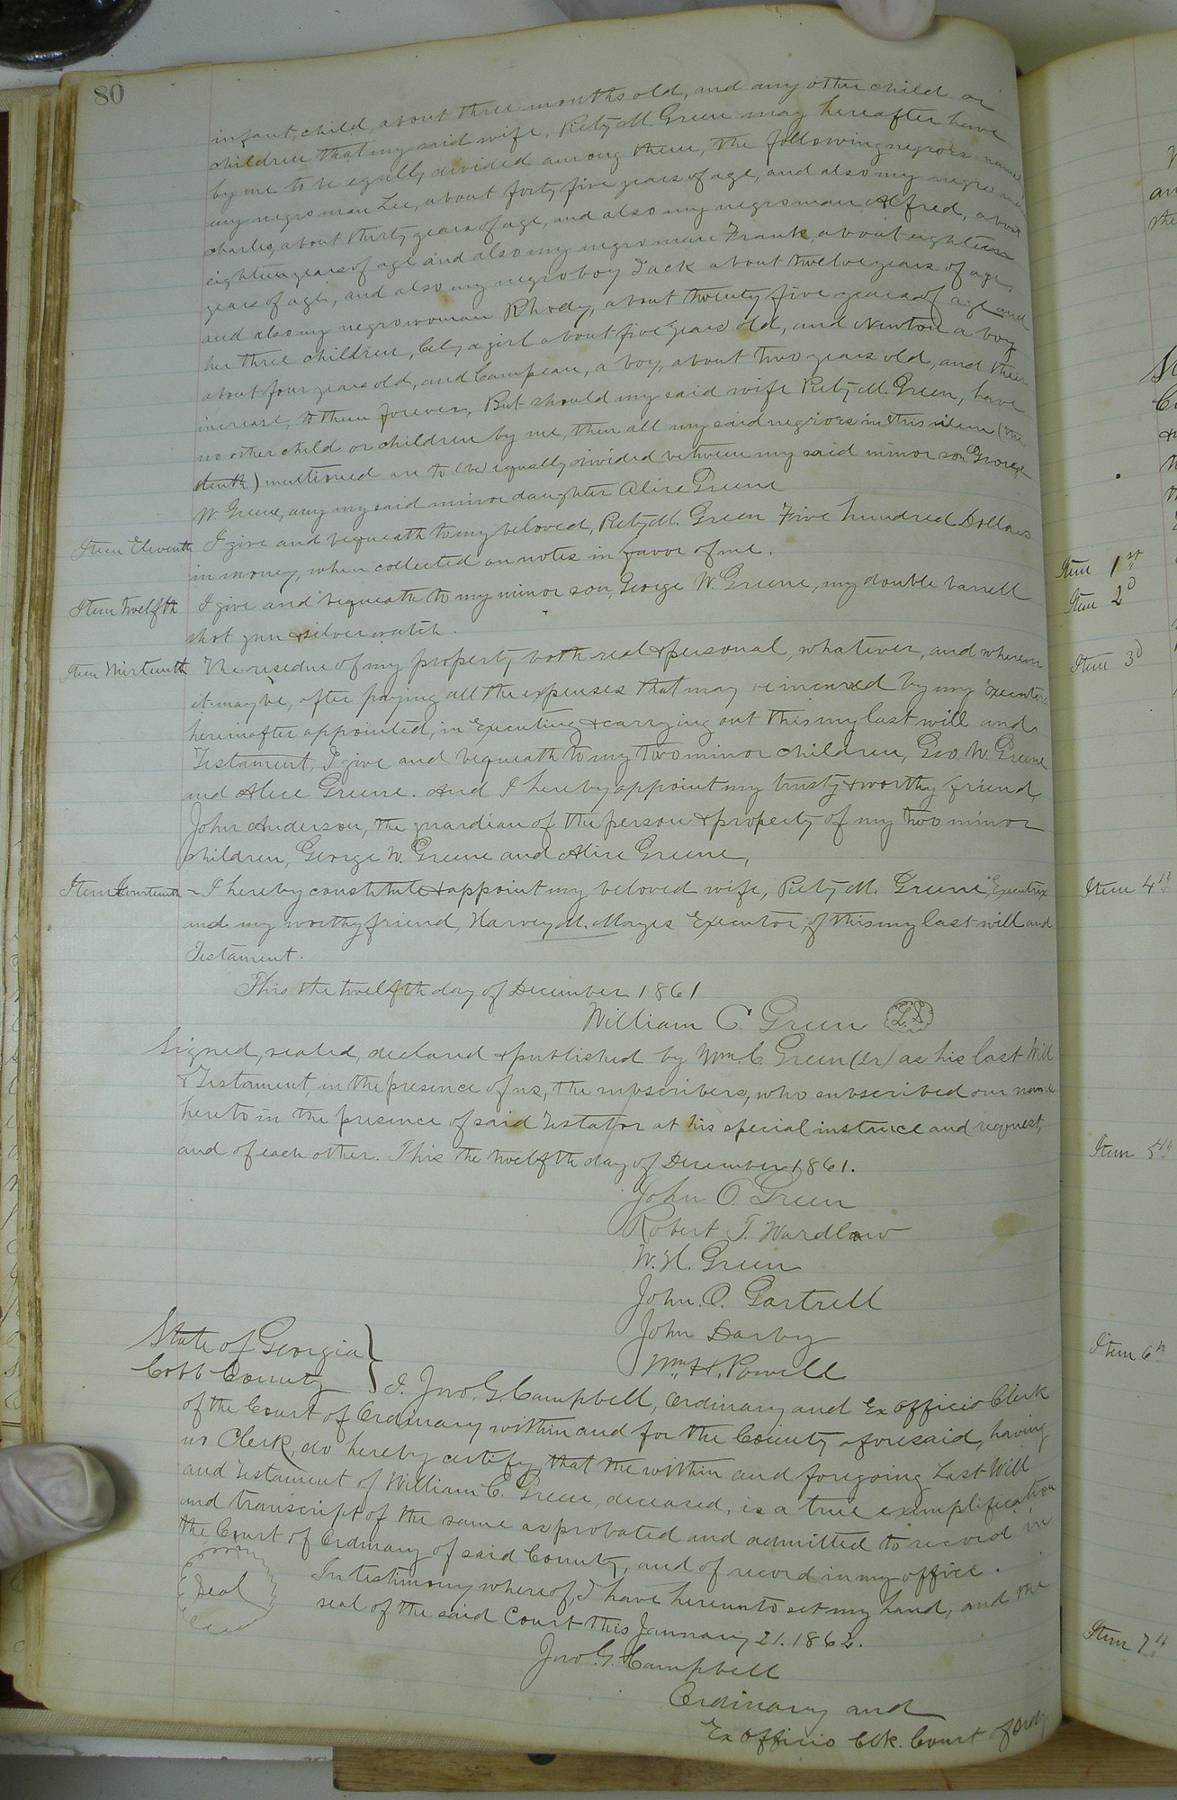 80
infant, child, about three months old, and any other child or
children that my said wife, Rety M Green may hereafter have
by me to be equally divided among them, the following negroes named
my negro man Lee, about forty five years of age, and also my negro man
Charles, about thirty years of age, and also my negro man Alfred, about
eighteen years of age and also my negro man Frank, about eighteen
years of age, and also my negro boy Jack about twelve years of age,
and also my negro woman Rhody, about twenty five years of age and
her three children, Cely a girl about five years old, and Newton a boy
about four years old, and Campean, a boy, about two years old, and their
increase, to them forever, But should my said wife Rety M. Green, have
no other child or children by me, then all my said negroes in this item (the
tenth) mentioned are to (be) equally divided between my said minor son George
W. Greene, any my said minor daughter Alice Greene
Item Eleventh I give and bequeath to my beloved, Rety M. Green Five hundred Dollars
in money, when collected on notes in favor of me.
Item twelfth I give and bequeath to my minor son, George W. Greene, my double barrell
shot gun & silver watch.
Item thirteenth The residue of my property both real & personal, whatever, and wherever
it may be, after paying all the expenses that may be incurred by my Executors
hereinafter appointed, in Executing & carrying out this my last will and
Testament, I give and bequeath to my two minor children, Geo. W. Greene
and Alice Greene. And I hereby appoint my trusty & worthy friend,
John Anderson, the guardian of the person & property of my two minor
children, George W. Greene and Alice Greene,
Item Fourteenth – I hereby constitute & appoint my beloved wife, Rety M. Greene Executrix
and my worthy friend, Harvey M. Mayes Executor, of this my last will and
Testament.
This the twelfth day of December 1861
William C. Green L.S.
Signed, sealed, declared & published by Wm. C. Green (Sr) as his last Will
& Testament, in the presence of us, the subscribers, who subscribed our names
hereto in the presence of said Testator at his special instance and request,
and of each other. This the twelfth day of December 1861.
John O. Green
Robert T. Wardlaw
W. H. Green
John. O. Gartrell
John Darby
Wm. H. Powell
State of Georgia }
Cobb County } I. Jno. G. Campbell, Ordinary and Ex officio Clerk
of the Court of Ordinary within and for the County aforesaid, having
no Clerk, do hereby certify that the within and foregoing Last Will
and Testament of William C. Green, deceased, is a true exemplification
and transcript of the same as probated and admitted to record in
the Court of Ordinary of said County, and of record in my office.
Seal In testimony whereof, I have hereunto set my hand, and the
seal of the said Court this January 21. 1862.
Jno. G. Campbell
Ordinary and
Ex officio Clk. Court of Ordy.
Item 1st
Item 2d
Item 3d
Item 4th
Item 5th
Item 6th
Item 7th